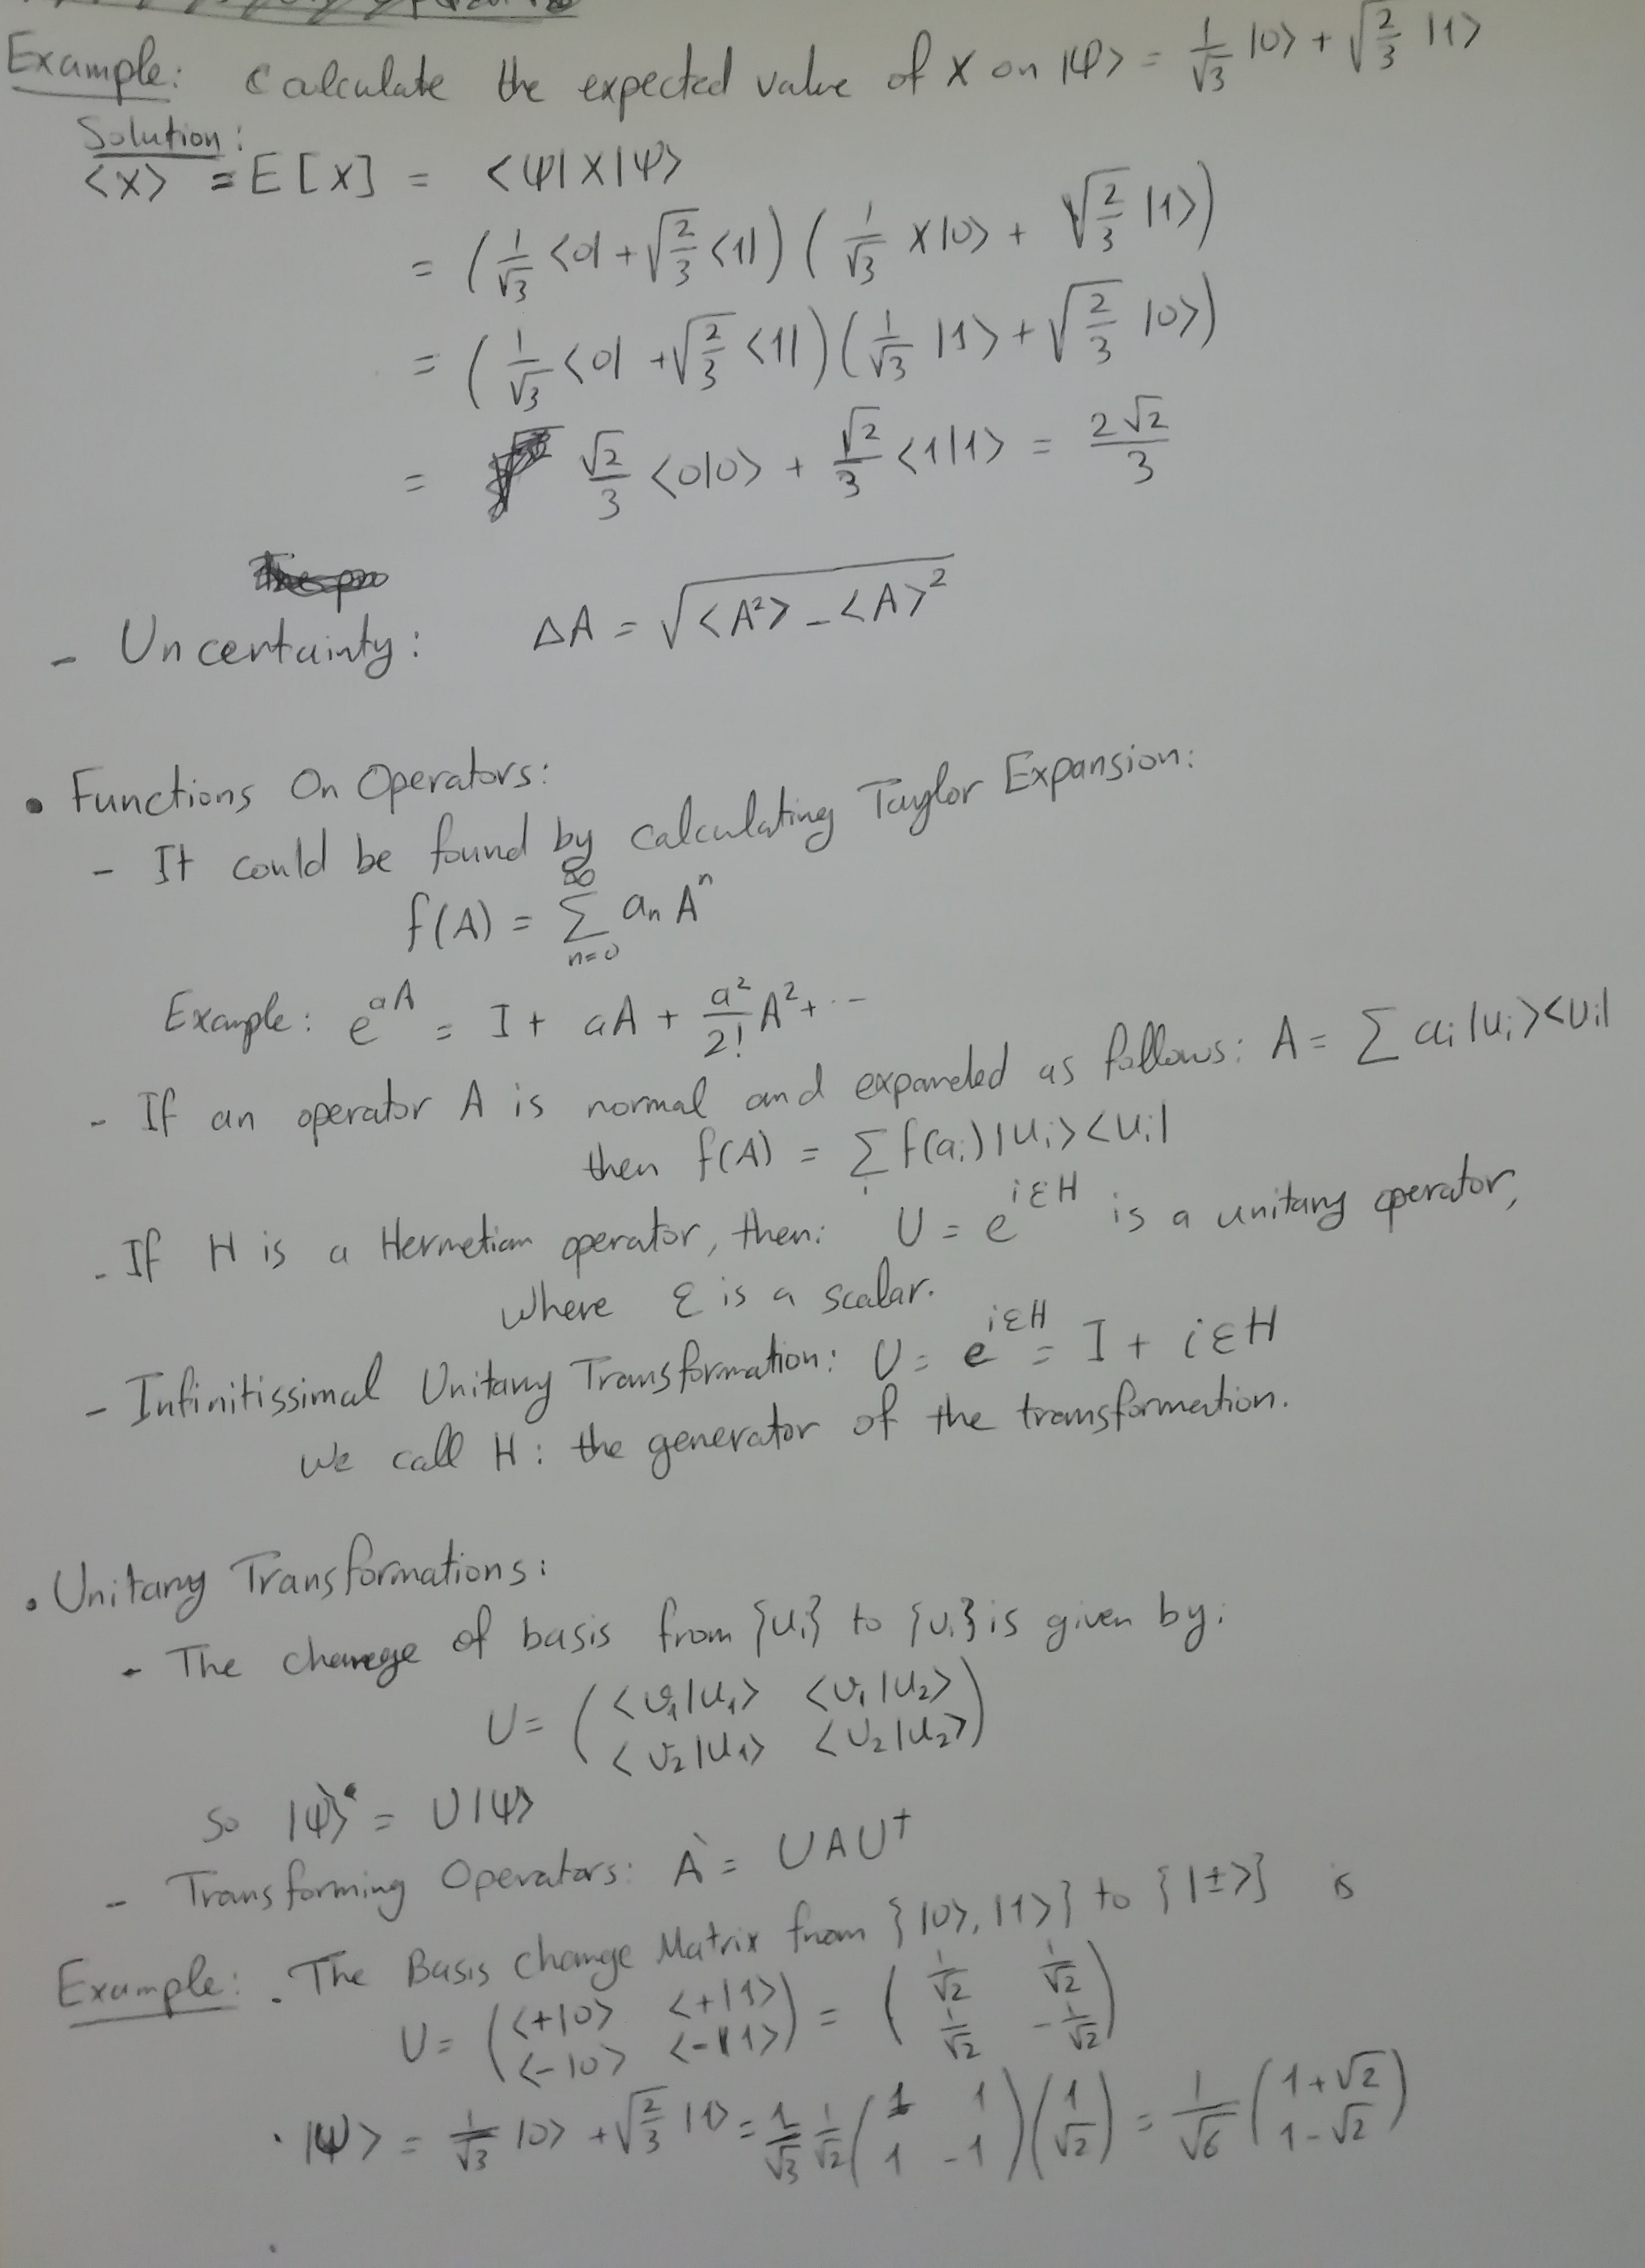 Example: Calculate the expected value of X on |ψ> = 1/√3 |0> + √(2/3) |1>
Solution:
<X> = E[X] = <ψ|X|ψ>
= (1/√3 <0| + √(2/3) <1|) (1/√3 X|0> + √(2/3) |1>)
= (1/√3 <0| + √(2/3) <1|) (1/√3 |1> + √(2/3) |0>)
= √2/3 <0|0> + √2/3 <1|1> = 2√2/3
- Uncertainty: ΔA = √(<A²> - <A>²)
• Functions On Operators:
- It could be found by calculating Taylor Expansion:
f(A) = ∑_{n=0}^{∞} aₙ Aⁿ
Example: e^{aA} = I + aA + a²/2! A² + ...
- If an operator A is normal and expanded as follows: A = ∑ aᵢ |uᵢ><uᵢ|
then f(A) = ∑ᵢ f(aᵢ) |uᵢ><uᵢ|
- If H is a Hermetian operator, then: U = e^{iεH} is a unitary operator,
where ε is a scalar.
- Infinitissimal Unitary Transformation: U = e^{iεH} = I + iεH
We call H: the generator of the transformation.
• Unitary Transformations:
- The change of basis from {uᵢ} to {vᵢ} is given by:
U = ( <v₁|u₁> <v₁|u₂>
<v₂|u₁> <v₂|u₂> )
so |ψ>' = U|ψ>
- Transforming Operators: A` = UAU†
Example: . The Basis change Matrix from {|0>, |1>} to {|±>} is
U = ( <+|0> <+|1> ) = ( 1/√2 1/√2 )
( <-|0> <-|1> ) ( 1/√2 -1/√2 )
. |ψ> = 1/√3 |0> + √(2/3) |1> = 1/√3 1/√2 ( 1 1 ) ( 1 ) = 1/√6 ( 1+√2 )
( 1 -1 ) ( √2 ) ( 1-√2 )